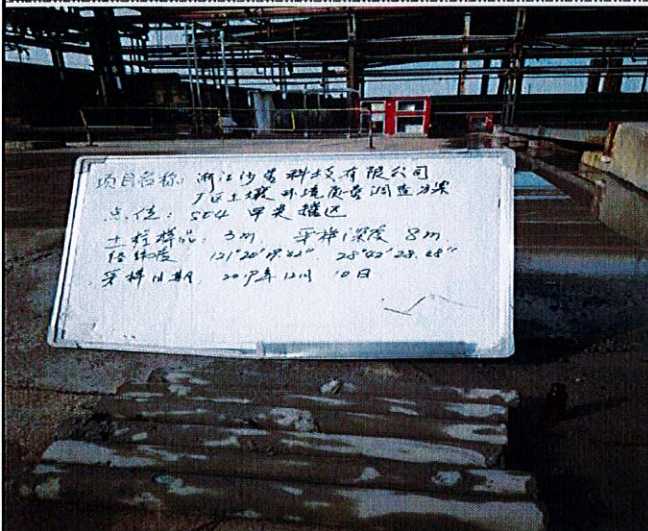 项目名称: 浙江沙星科技有限公司
厂区土壤环境质量调查方案
点位: 甲类罐区
土柱样品: 3m 采样深度 8m
经纬度 121°20' 28°42'28.28"
采样日期: 12月10日